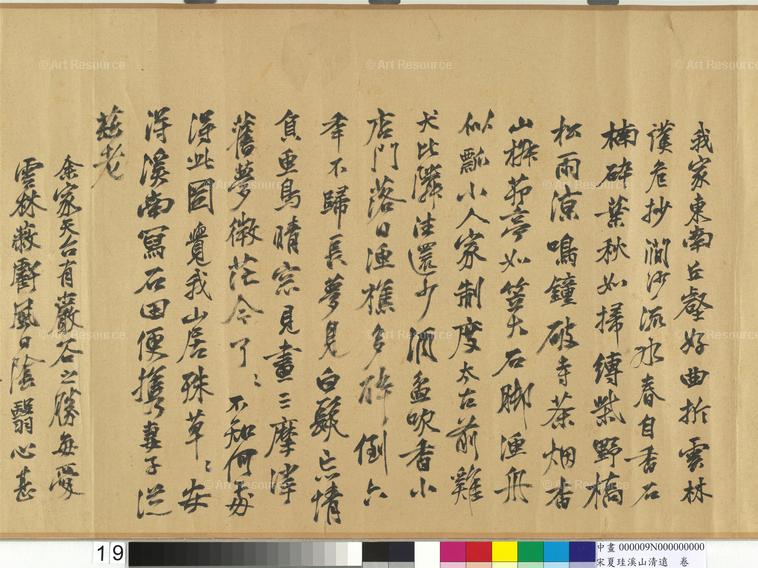 我家東南丘壑好曲折雲林
謹危抄澗沙流水春自香石
楠碎葉秋如掃縛柴野橋
松雨涼鳴鐘破寺茶烟杳
山擁茆亭如笠大石腳漁舟
似瓢小人家制度太古前雞
犬比隣往還少酒盃吹香小
店門落日漁樵多醉倒六
年不歸長夢見白髮忘情
負魚鳥晴窗見畫三摩挲
舊夢微茫今了〻不知何處
得此圖覺我山居殊草〻安
得溪南寫石田便攜妻子從
茲老
余家天台有巖谷之勝每愛
雲林蔽虧風日陰翳心甚
© Art Resource
© Art Resource
© Art Resource
© Art Resource
© Art Resource
© Art Resource
© Art Resource
© Art Resource
© Art Resource
19
中畫 000009N000000000
宋夏珪溪山清遠 卷